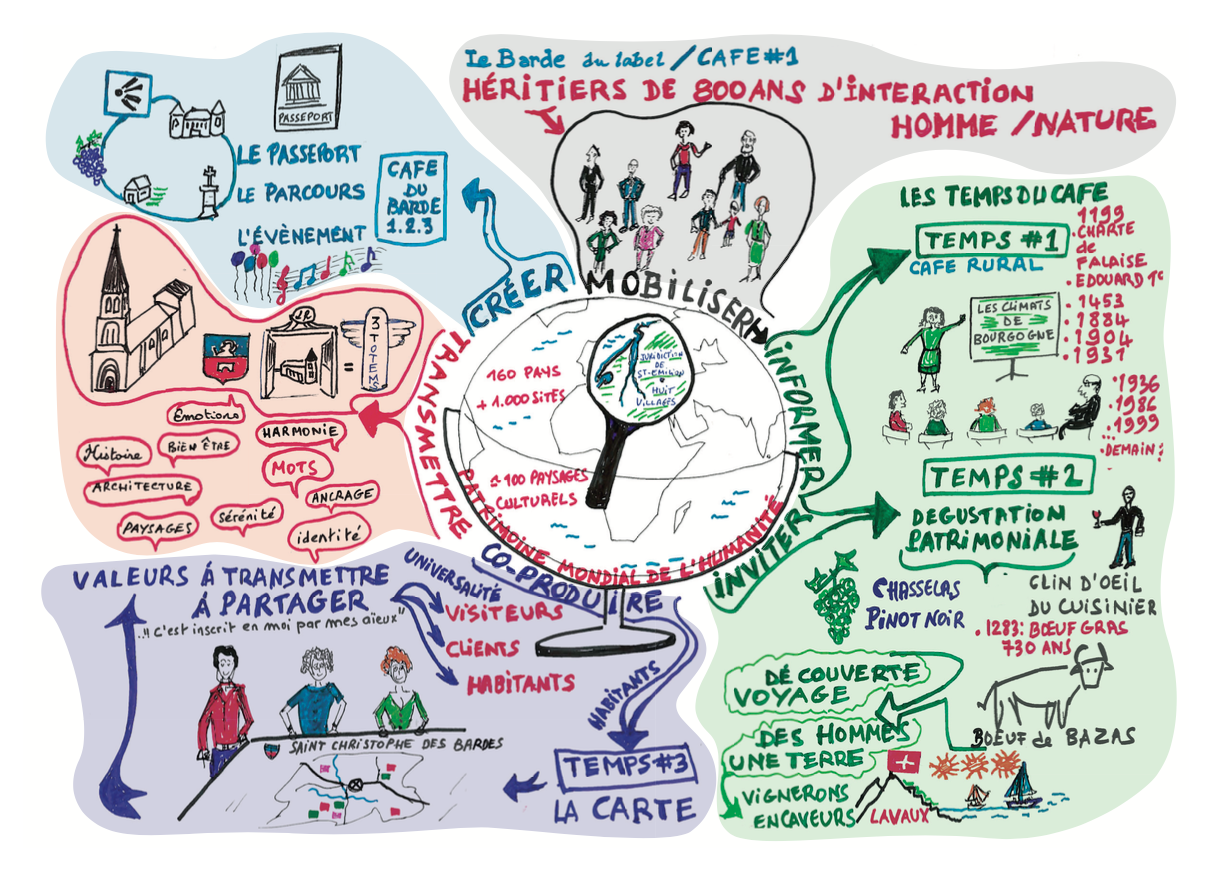 Le Barde du label / CAFE #1
HÉRITIERS DE 800 ANS D'INTERACTION
HOMME / NATURE
PASSEPORT
LE PASSEPORT
LE PARCOURS
L'ÉVÈNEMENT
CAFE
DU
BARDE
1.2.3
CRÉER
MOBILISER
INFORMER
INVITER
CO-PRODUIRE
TRANSMETTRE
160 PAYS
+ 1.000 SITÉS
≃ 100 PAYSAGES
CULTURELS
PATRIMOINE MONDIAL DE L'HUMANITÉ
JURIDICTION
DE
ST-EMILION
HUIT
VILLAGES
LES TEMPS DU CAFE
TEMPS #1
CAFE RURAL
1199
CHARTE
de
FALAISE
EDOUARD 1er
1453
1884
1904
1931
1936
1986
1999
...
DEMAIN ?
LES CLIMATS
DE
BOURGOGNE
TEMPS #2
DEGUSTATION
PATRIMONIALE
CHASSELAS
PINOT NOIR
CLIN D'OEIL
DU CUISINIER
1283: BŒUF GRAS
730 ANS
BOEUF de BAZAS
DÉCOUVERTE
VOYAGE
DES HOMMES
UNE TERRE
VIGNERONS
ENCAVEURS
LAVAUX
3
TOTEMS
=
Émotions
HARMONIE
Histoire
BIEN ÊTRE
MOTS
ARCHITECTURE
ANCRAGE
PAYSAGES
sérénité
identité
VALEURS Á TRANSMETTRE
Á PARTAGER
..!! C'est inscrit en moi par mes aïeux"
UNIVERSALITÉ
VISITEURS
CLIENTS
HABITANTS
HABITANTS
SAINT CHRISTOPHE DES BARDES
TEMPS #3
LA CARTE